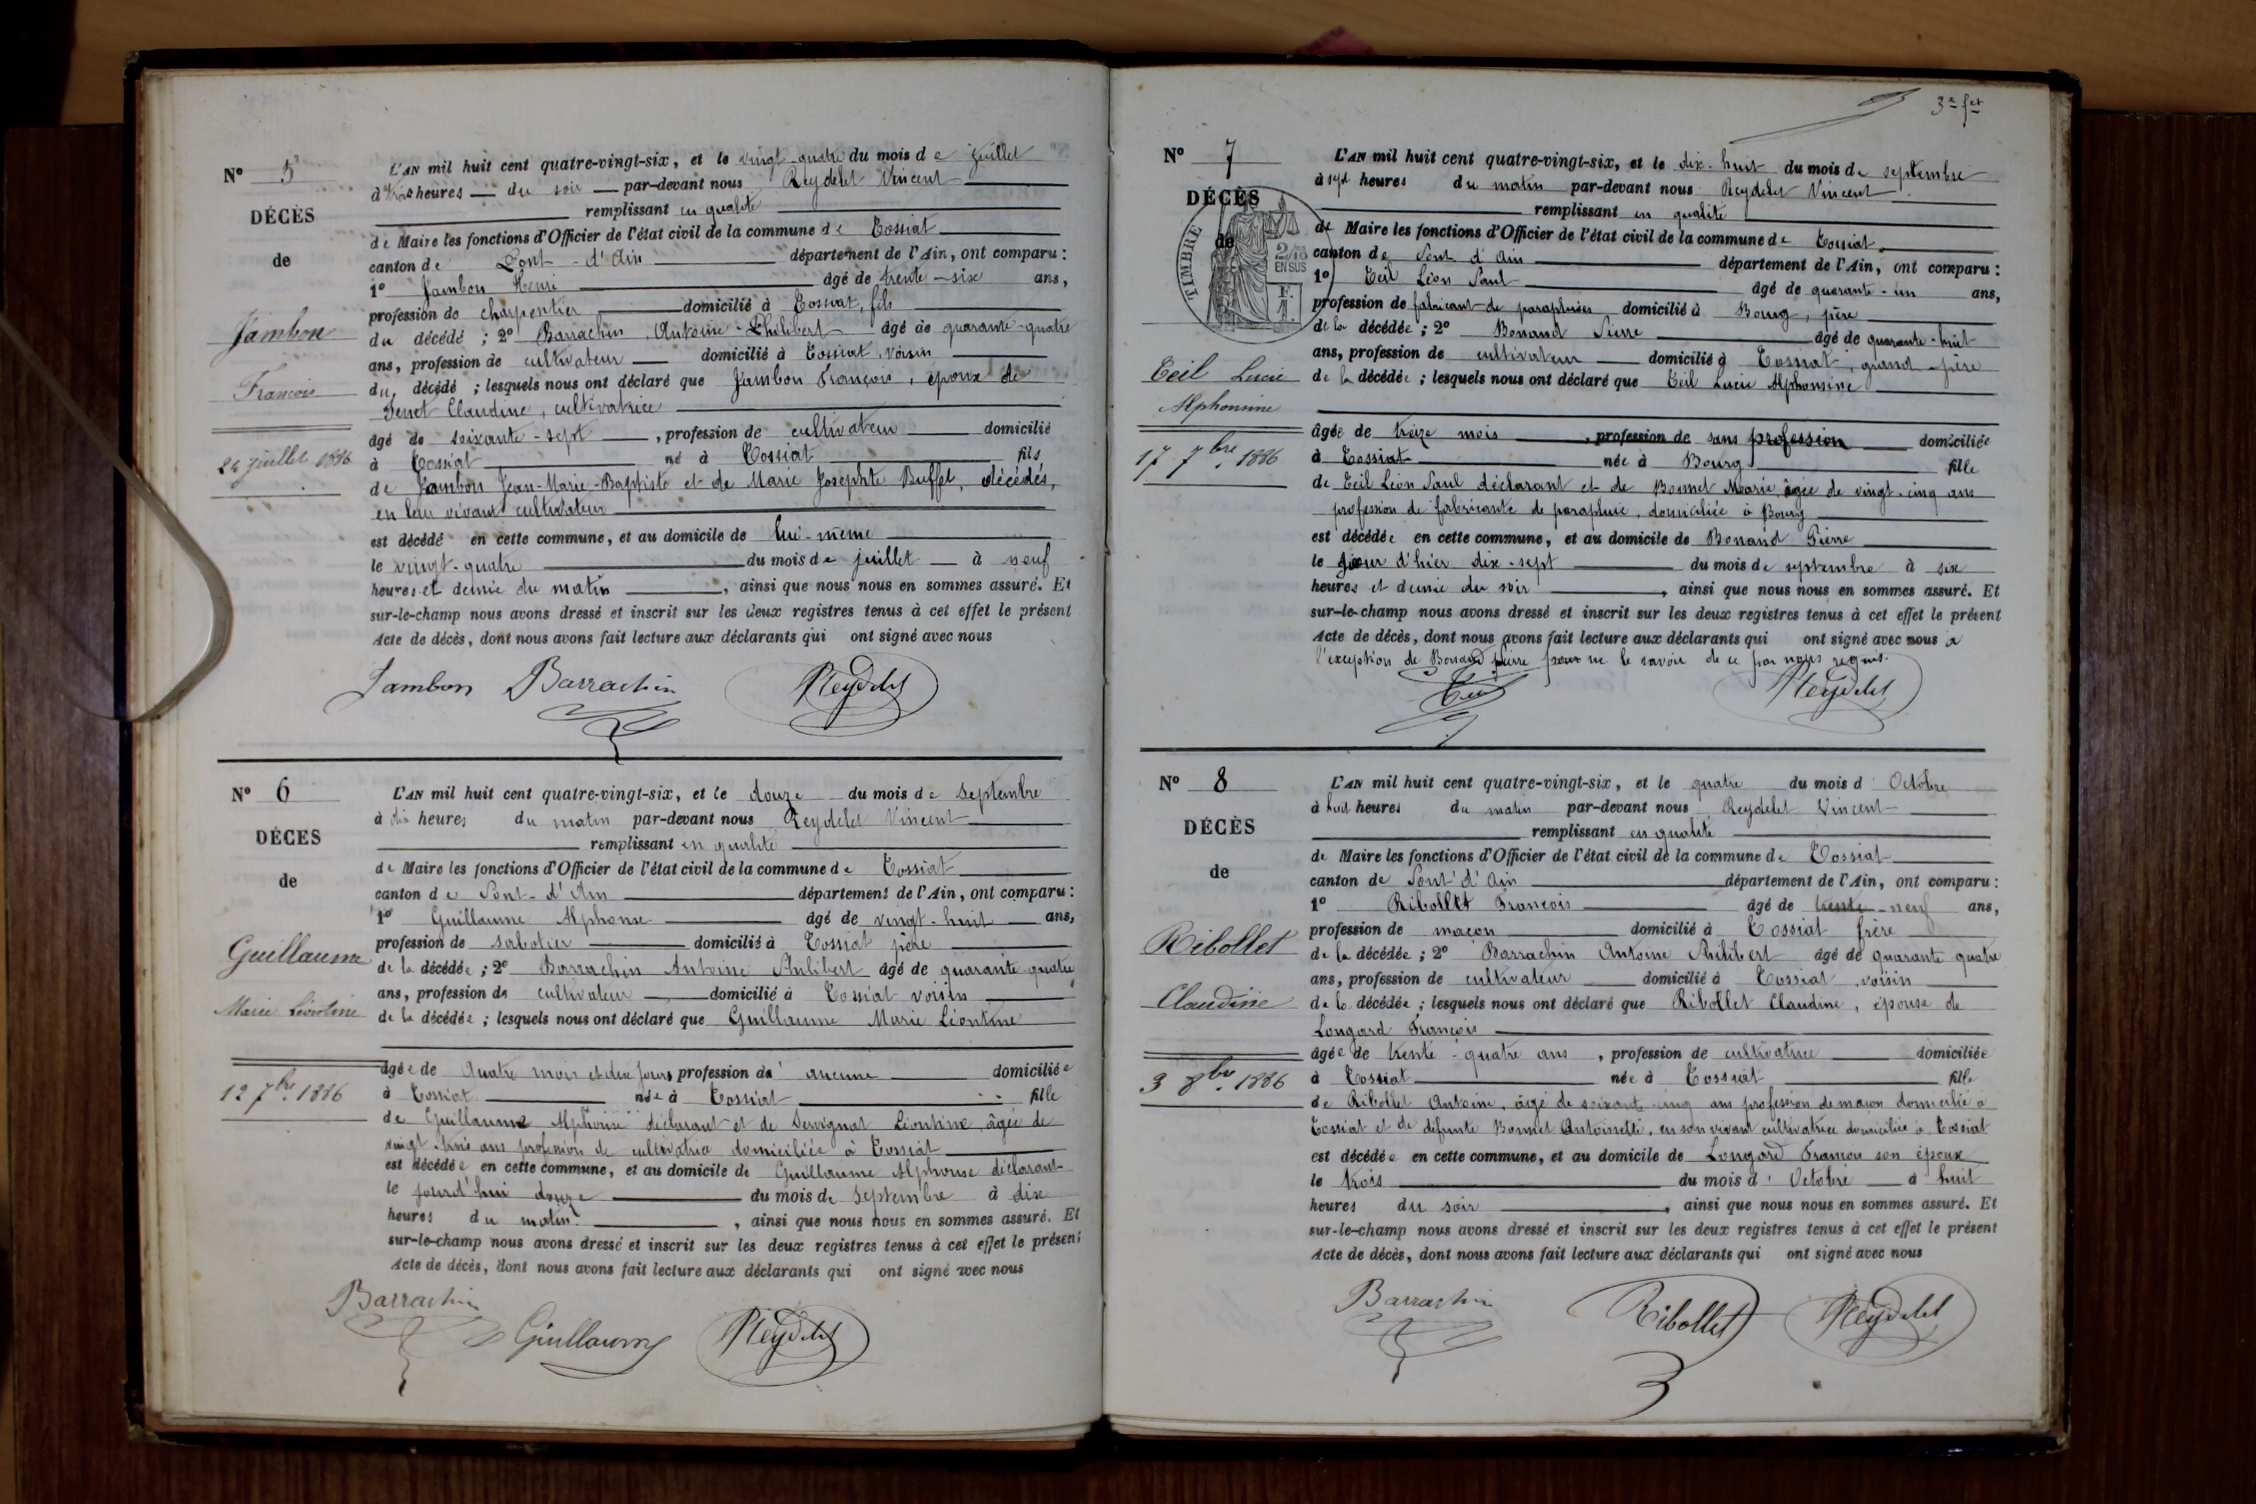 N° 5
DÉCÈS
de
Jambon
François
24 juillet 1886
L'AN mil huit cent quatre-vingt-six, et le vingt-quatre du mois de juillet
à trois heures du soir par-devant nous Reydelet Vincent
remplissant en qualité
de Maire les fonctions d'Officier de l'état civil de la commune de Tossiat
canton de Pont-d'Ain département de l'Ain, ont comparu :
1° Jambon Henri âgé de trente-six ans,
profession de charpentier domicilié à Tossiat, fils
du décédé ; 2° Barrachin Antoine-Philibert âgé de quarante-quatre
ans, profession de cultivateur domicilié à Tossiat, voisin
du décédé ; lesquels nous ont déclaré que Jambon François, époux de
Claudine, cultivatrice
âgé de soixante-sept, profession de cultivateur domicilié
à Tossiat né à Tossiat fils
de Jambon Jean-Marie-Baptiste et de Marie Josephte Buffet, décédés,
en leur vivant cultivateur
est décédé en cette commune, et au domicile de lui-même
le vingt-quatre du mois de juillet à neuf
heures et demie du matin, ainsi que nous nous en sommes assuré. Et
sur-le-champ nous avons dressé et inscrit sur les deux registres tenus à cet effet le présent
Acte de décès, dont nous avons fait lecture aux déclarants qui ont signé avec nous
Jambon Barrachin Reydelet
N° 6
DÉCES
de
Guillaume
Marie Léontine
12 7bre 1886
L'AN mil huit cent quatre-vingt-six, et le douze du mois de septembre
à dix heures du matin par-devant nous Reydelet Vincent
remplissant en qualité
de Maire les fonctions d'Officier de l'état civil de la commune de Tossiat
canton de Pont-d'Ain département de l'Ain, ont comparu :
1° Guillaume Alphonse âgé de vingt-huit ans,
profession de sabotier domicilié à Tossiat père
de la décédée ; 2° Barrachin Antoine Philibert âgé de quarante quatre
ans, profession de cultivateur domicilié à Tossiat voisin
de la décédée ; lesquels nous ont déclaré que Guillaume Marie Léontine
âgée de quatre mois et dix jours profession de aucune domiciliée
à Tossiat née à Tossiat fille
de Guillaume Alphonse déclarant et de Servignat Léontine âgée de
vingt-trois ans profession de cultivatrice domiciliée à Tossiat
est décédée en cette commune, et au domicile de Guillaume Alphonse déclarant
le jourd'hui douze du mois de septembre à dix
heures du matin, ainsi que nous nous en sommes assuré. Et
sur-le-champ nous avons dressé et inscrit sur les deux registres tenus à cet effet le présent
Acte de décès, dont nous avons fait lecture aux déclarants qui ont signé avec nous
Barrachin Guillaume Reydelet
3e fet
N° 7
DÉCÈS
de
TIMBRE
2/10
EN SUS
F.
1.
Teil Lucie
Alphonsine
17 7bre 1886
L'AN mil huit cent quatre-vingt-six, et le dix-huit du mois de septembre
à sept heures du matin par-devant nous Reydelet Vincent
remplissant en qualité
de Maire les fonctions d'Officier de l'état civil de la commune de Tossiat
canton de Pont d'Ain département de l'Ain, ont comparu :
1° Teil Léon Paul âgé de quarante-un ans,
profession de fabricant de parapluies domicilié à Bourg, père
de la décédée ; 2° Bonand Pierre âgé de quarante-huit
ans, profession de cultivateur domicilié à Tossiat, grand-père
de la décédée ; lesquels nous ont déclaré que Teil Lucie Alphonsine
âgée de treize mois, profession de sans profession domiciliée
à Tossiat née à Bourg fille
de Teil Léon Paul déclarant et de Marie âgée de vingt-cinq ans
profession de fabricante de parapluie, domiciliée à Bourg
est décédée en cette commune, et au domicile de Bonand Pierre
le jour d'hier dix-sept du mois de septembre à six
heures et demie du soir, ainsi que nous nous en sommes assuré. Et
sur-le-champ nous avons dressé et inscrit sur les deux registres tenus à cet effet le présent
Acte de décès, dont nous avons fait lecture aux déclarants qui ont signé avec nous à
l'exception de Bonand Pierre pour ne le savoir de ce par nous requis.
Teil Reydelet
N° 8
DÉCÈS
de
Ribollet
Claudine
3 8bre 1886
L'AN mil huit cent quatre-vingt-six, et le quatre du mois d'Octobre
à huit heures du matin par-devant nous Reydelet Vincent
remplissant en qualité
de Maire les fonctions d'Officier de l'état civil de la commune de Tossiat
canton de Pont d'Ain département de l'Ain, ont comparu :
1° Ribollet François âgé de trente-neuf ans,
profession de maçon domicilié à Tossiat frère
de la décédée ; 2° Barrachin Antoine Philibert âgé de quarante quatre
ans, profession de cultivateur domicilié à Tossiat, voisin
de la décédée ; lesquels nous ont déclaré que Ribollet Claudine, épouse de
Longard François
âgée de trente-quatre ans, profession de cultivatrice domiciliée
à Tossiat née à Tossiat fille
de Ribollet Antoine, âgé de soixante-cinq ans profession de maçon domicilié à
Tossiat et de défunte Bonnet Antoinette, en son vivant cultivatrice domiciliée à Tossiat
est décédée en cette commune, et au domicile de Longard François son époux
le trois du mois d'Octobre à huit
heures du soir, ainsi que nous nous en sommes assuré. Et
sur-le-champ nous avons dressé et inscrit sur les deux registres tenus à cet effet le présent
Acte de décès, dont nous avons fait lecture aux déclarants qui ont signé avec nous
Barrachin Ribollet Reydelet